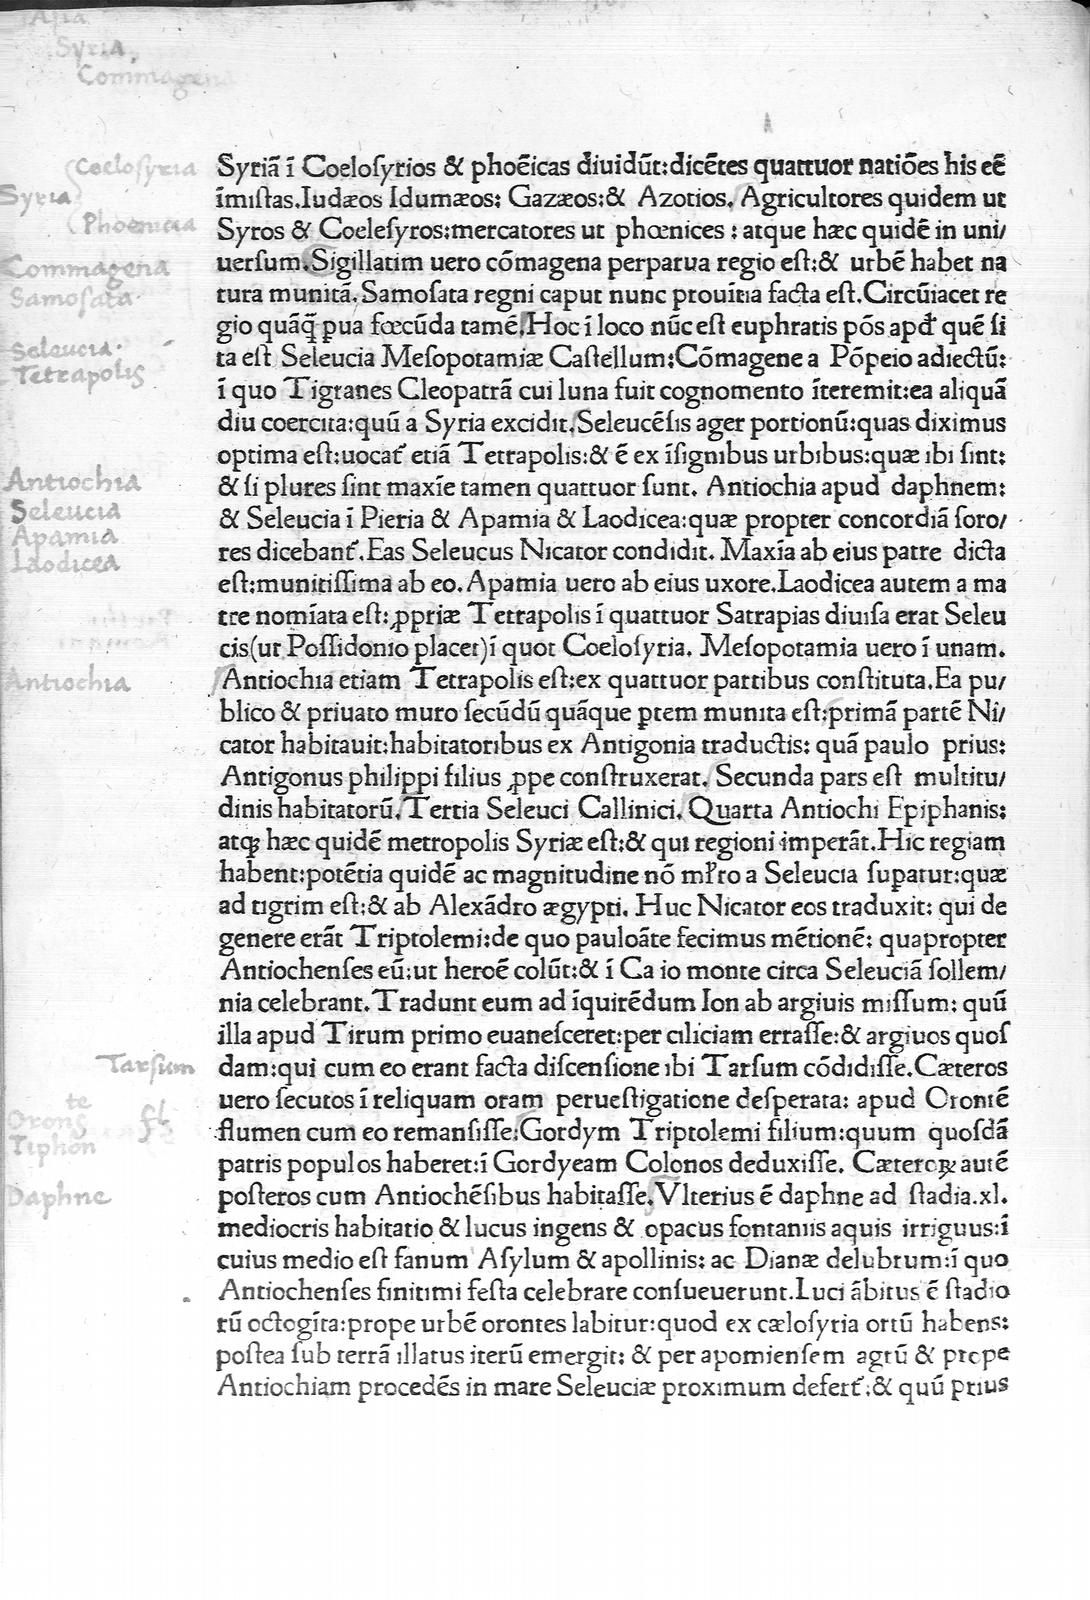 Asia
Syria.
Commagena
Coelosyria
Syria
Phoenicia
Commagena
Samosata
Seleucia.
Tetrapolis
Antiochia
Seleucia
Apamia
Laodicea
Antiochia
Tarsum
te
Orong fl.
Tiphon
Daphne
Syriā ī Coeloſyrios & phoēicas diuidūt:dicētes quattuor natiōes his eē
īmiſtas.Iudæos Idumæos: Gazæos:& Azotios. Agricultores quidem ut
Syros & Coeleſyros:mercatores ut phœnices : atque hæc quidē in uni/
uerſum.Sigillatim uero cōmagena perparua regio eſt:& urbē habet na
tura munitā.Samoſata regni caput nunc prouītia facta eſt.Circūiacet re
gio quāꝗ̄ ꝑua fœcūda tamē.Hoc ī loco nūc eſt euphratis pōs apđ quē ſi
ta eſt Seleucia Meſopotamiæ Caſtellum:Cōmagene a Pōpeio adiectū:
ī quo Tigranes Cleopatrā cui luna fuit cognomento īteremit:ea aliquā
diu coercita:quū a Syria excidit.Seleucēſis ager portionū:quas diximus
optima eſt:uocat᷑ etiā Tetrapolis:& ē ex īſignibus urbibus:quæ ibi ſint:
& ſi plures ſint maxīe tamen quattuor ſunt. Antiochia apud daphnem:
& Seleucia ī Pieria & Apamia & Laodicea:quæ propter concordiā ſoro/
res dicebant᷑.Eas Seleucus Nicator condidit. Maxīa ab eius patre dicta
eſt:munitiſſima ab eo.Apamia uero ab eius uxore.Laodicea autem a ma
tre nomīata eſt:ꝓpriæ Tetrapolis ī quattuor Satrapias diuiſa erat Seleu
cis(ut Poſſidonio placet)ī quot Coeloſyria. Meſopotamia uero ī unam.
Antiochia etiam Tetrapolis eſt:ex quattuor partibus conſtituta.Ea pu/
blico & priuato muro ſecūdū quāque ꝑtem munita eſt:primā partē Ni/
cator habitauit:habitatoribus ex Antigonia traductis: quā paulo prius:
Antigonus philippi filius ꝓpe conſtruxerat. Secunda pars eſt multitu/
dinis habitatorū.Tertia Seleuci Callinici. Quarta Antiochi Epiphanis:
atqꝫ hæc quidē metropolis Syriæ eſt:& qui regioni imperāt.Hic regiam
habent:potētia quidē ac magnitudine nō ml᷑to a Seleucia ſuꝑatur:quæ
ad tigrim eſt:& ab Alexādro ægypti. Huc Nicator eos traduxit: qui de
genere erāt Triptolemi:de quo pauloāte fecimus mētionē: quapropter
Antiochenſes eū:ut heroē colūt:& ī Ca io monte circa Seleuciā ſollem/
nia celebrant.Tradunt eum ad īquirēdum Ion ab argiuis miſſum: quū
illa apud Tirum primo euaneſceret:per ciliciam erraſſe:& argiuos quoſ
dam:qui cum eo erant facta diſcenſione ibi Tarſum cōdidiſſe.Cæteros
uero ſecutos ī reliquam oram perueſtigatione deſperata: apud Orontē
flumen cum eo remanſiſſe:Gordym Triptolemi filium:quum quoſdā
patris populos haberet:ī Gordyeam Colonos deduxiſſe. Cæteroꝝ autē
poſteros cum Antiochēſibus habitaſſe.Vlterius ē daphne ad ſtadia.xl.
mediocris habitatio & lucus ingens & opacus fontaniis aquis irriguus:ī
cuius medio eſt fanum Aſylum & apollinis: ac Dianæ delubrum:ī quo
Antiochenſes finitimi feſta celebrare conſueuerunt.Luci ābitus ē ſtadio
rū octogīta:prope urbē orontes labitur:quod ex cæloſyria ortū habens:
poſtea ſub terrā illatus iterū emergit: & per apomienſem agrū & prope
Antiochiam procedēs in mare Seleuciæ proximum defert᷑:& quū prius